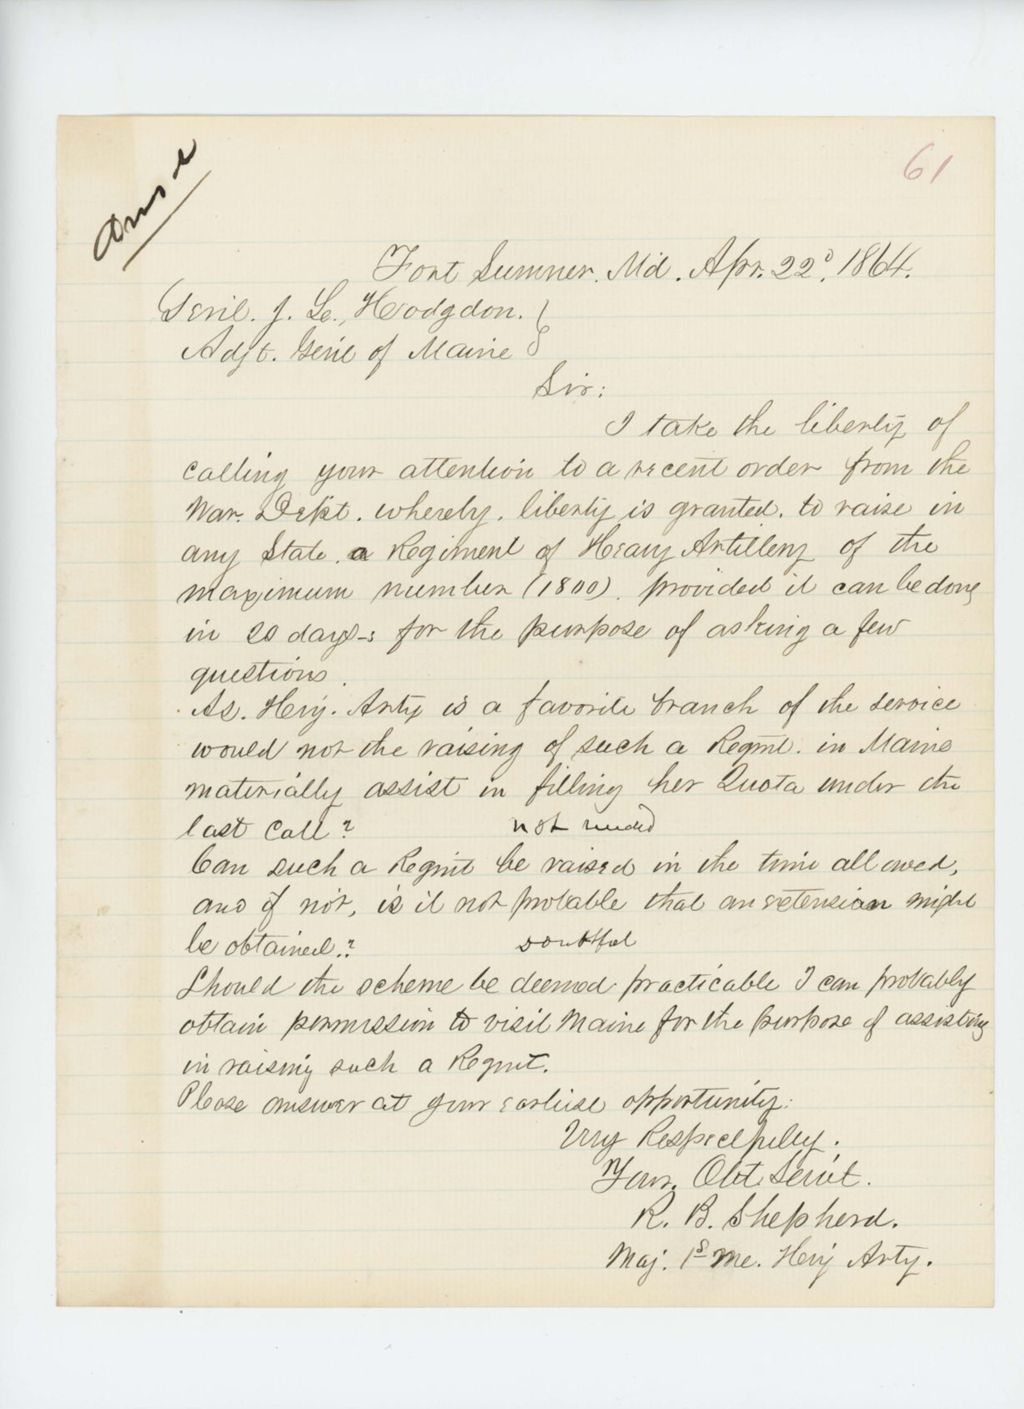 61
Fort Sumner. Md. Apr. 22d, 1864.
Genl. J. L. Hodgdon.
Adjt. Genl of Maine
Sir:
I take the liberty of
calling your attention to a recent order from the
War. Dept. whereby. liberty is granted. to raise in
any State. a Regiment of Heavy Artillery of the
maximum number (1800). provided it can be done
in 20 days-; for the purpose of asking a few
questions.
As. Hvy. Arty is a favorite branch of the service
would not the raising of such a Regmt. in Maine
materially assist in filling her Quota under the
last Call? not needed
Can such a Regmt be raised in the time allowed,
and if not, is it not probable that an extension might
be obtained.? doubtful
Should the scheme be deemed practicable I can probably
obtain permission to visit Maine for the purpose of assisting
in raising such a Regmt.
Please answer at your earliest opportunity.
Very Respectfully.
Your. Obt. Servt.
R. B. Shepherd.
Maj. 1st Me. Hvy Arty.